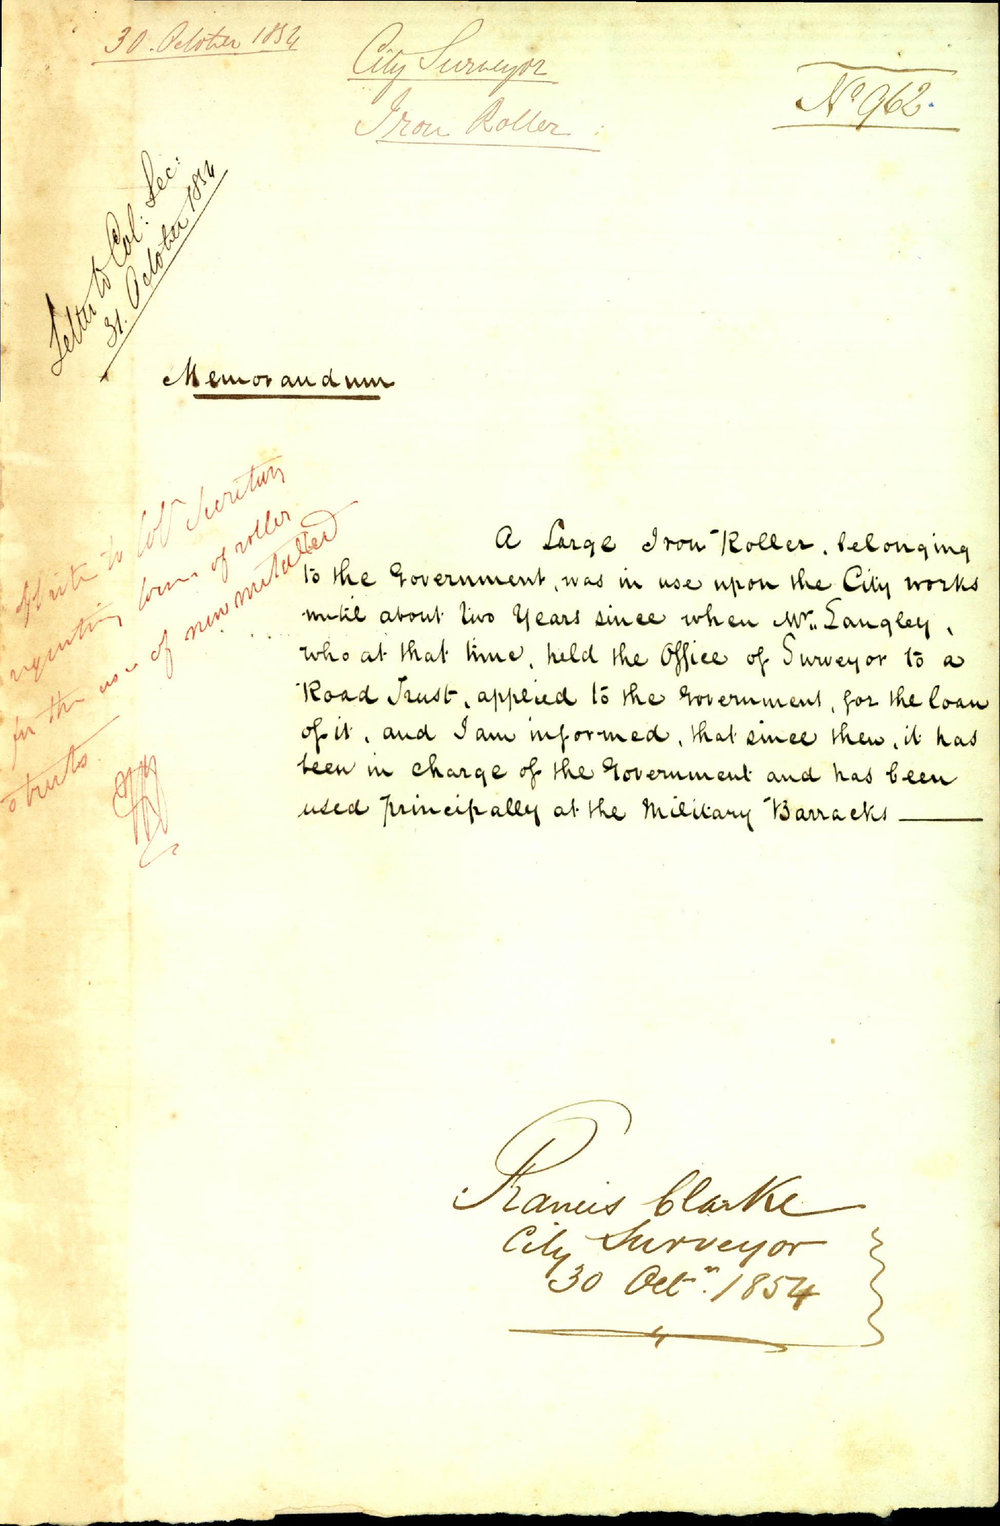 30. October 1854
City Surveyor
Iron Roller
No 962.
Letter to Col: Sec:
31. October 1854
Memorandum
Write to Col Secretary
requesting loan of roller
for the use of new metalled
streets
A Large Iron Roller, belonging
to the Government, was in use upon the City works
until about two Years since when Mr. Langley,
who at that time, held the Office of Surveyor to a
Road Trust, applied to the Government, for the loan
of it, and I am informed, that since then, it has
been in charge of the Government and has been
used principally at the Military Barracks
Francis Clarke
City Surveyor
30 Oct. 1854